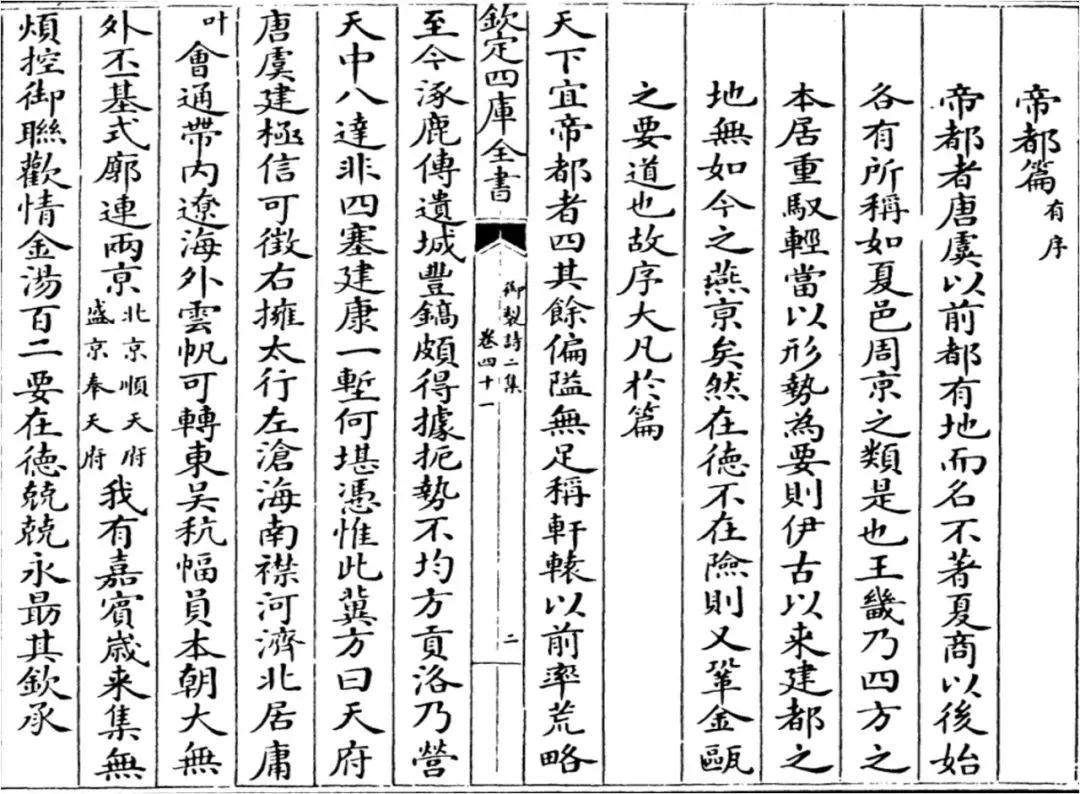 帝都篇有序
帝都者唐虞以前都有地而名不著夏商以後始
各有所稱如夏邑周京之類是也王畿乃四方之
本居重馭輕當以形勢為要則伊古以来建都之
地無如今之燕京矣然在徳不在險則又鞏金甌
之要道也故序大凡於篇
天下宜帝都者四其餘偏隘無足稱軒轅以前率荒略
欽定四庫全書
御製詩二集
卷四十一
二
至今涿鹿傳遺城豐鎬頗得據扼勢不均方貢洛乃營
天中八達非四塞建康一塹何堪憑惟此冀方曰天府
唐虞建極信可徵右擁太行左滄海南襟河濟北居庸
叶會通帶内遼海外雲帆可轉東吴秔幅員本朝大無
外丕基式廓連兩京北京順天府盛京奉天府我有嘉賓歲来集無
煩控御聯歡情金湯百二要在徳兢兢永朂其欽承